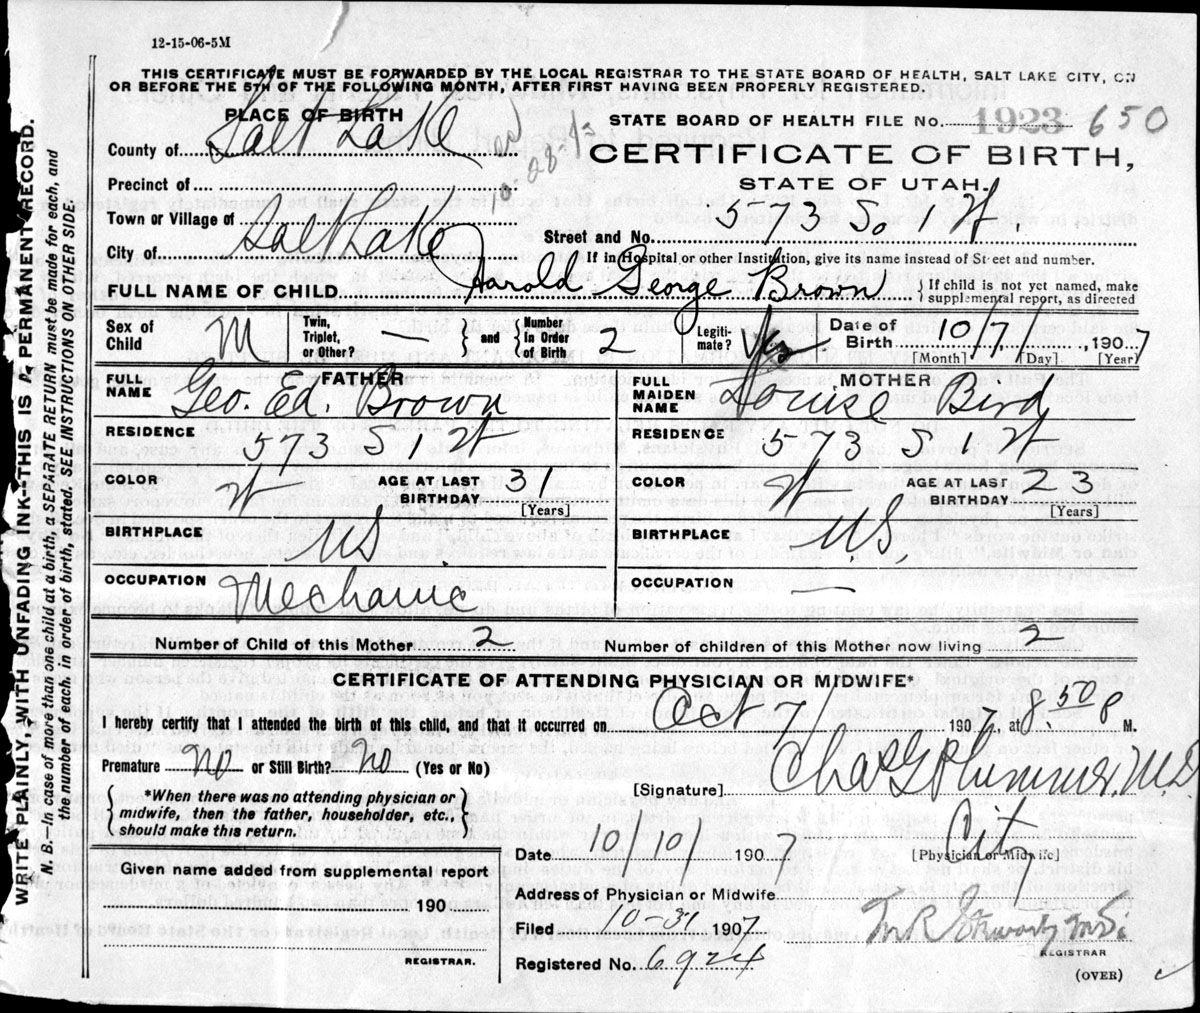 12-15-06-5M
THIS CERTIFICATE MUST BE FORWARDED BY THE LOCAL REGISTRAR TO THE STATE BOARD OF HEALTH, SALT LAKE CITY, ON
OR BEFORE THE 5TH OF THE FOLLOWING MONTH, AFTER FIRST HAVING BEEN PROPERLY REGISTERED.
PLACE OF BIRTH
STATE BOARD OF HEALTH FILE No. 1923 650
County of Salt Lake
CERTIFICATE OF BIRTH,
Precinct of
STATE OF UTAH.
Town or Village of
Street and No. 573 So 1 W.
City of Salt Lake
If in Hospital or other Institution, give its name instead of Street and number.
FULL NAME OF CHILD Harold George Brown
{ If child is not yet named, make
supplemental report, as directed
Sex of Child M
Twin, Triplet, or Other? —
{ and { Number in Order of Birth 2
Legiti-mate? Yes
Date of Birth 10/7/, 1907
[Month] [Day] [Year]
FATHER
FULL NAME Geo. Ed. Brown
MOTHER
FULL MAIDEN NAME Louise Bird
RESIDENCE 573 S 1 W
RESIDENCE 573 S. 1 W
COLOR W AGE AT LAST BIRTHDAY 31 [Years]
COLOR W AGE AT LAST BIRTHDAY 23 [Years]
BIRTHPLACE U.S.
BIRTHPLACE U.S.
OCCUPATION Mechanic
OCCUPATION —
Number of Child of this Mother 2
Number of children of this Mother now living 2
CERTIFICATE OF ATTENDING PHYSICIAN OR MIDWIFE*
I hereby certify that I attended the birth of this child, and that it occurred on Oct 7 1907, at 8 50 M.
Premature no or Still Birth? no (Yes or No)
[Signature] Chas G Plummer, M.D.
*When there was no attending physician or
midwife, then the father, householder, etc.,
should make this return.
[Physician or Midwife]
Date 10/10/ 1907
City
Given name added from supplemental report
190
Address of Physician or Midwife
Filed 10-31-1907
REGISTRAR.
REGISTRAR
Registered No. 6924
(OVER)
WRITE PLAINLY, WITH UNFADING INK—THIS IS A PERMANENT RECORD.
N. B.—In case of more than one child at a birth, a SEPARATE RETURN must be made for each, and
the number of each, in order of birth, stated. SEE INSTRUCTIONS ON OTHER SIDE.